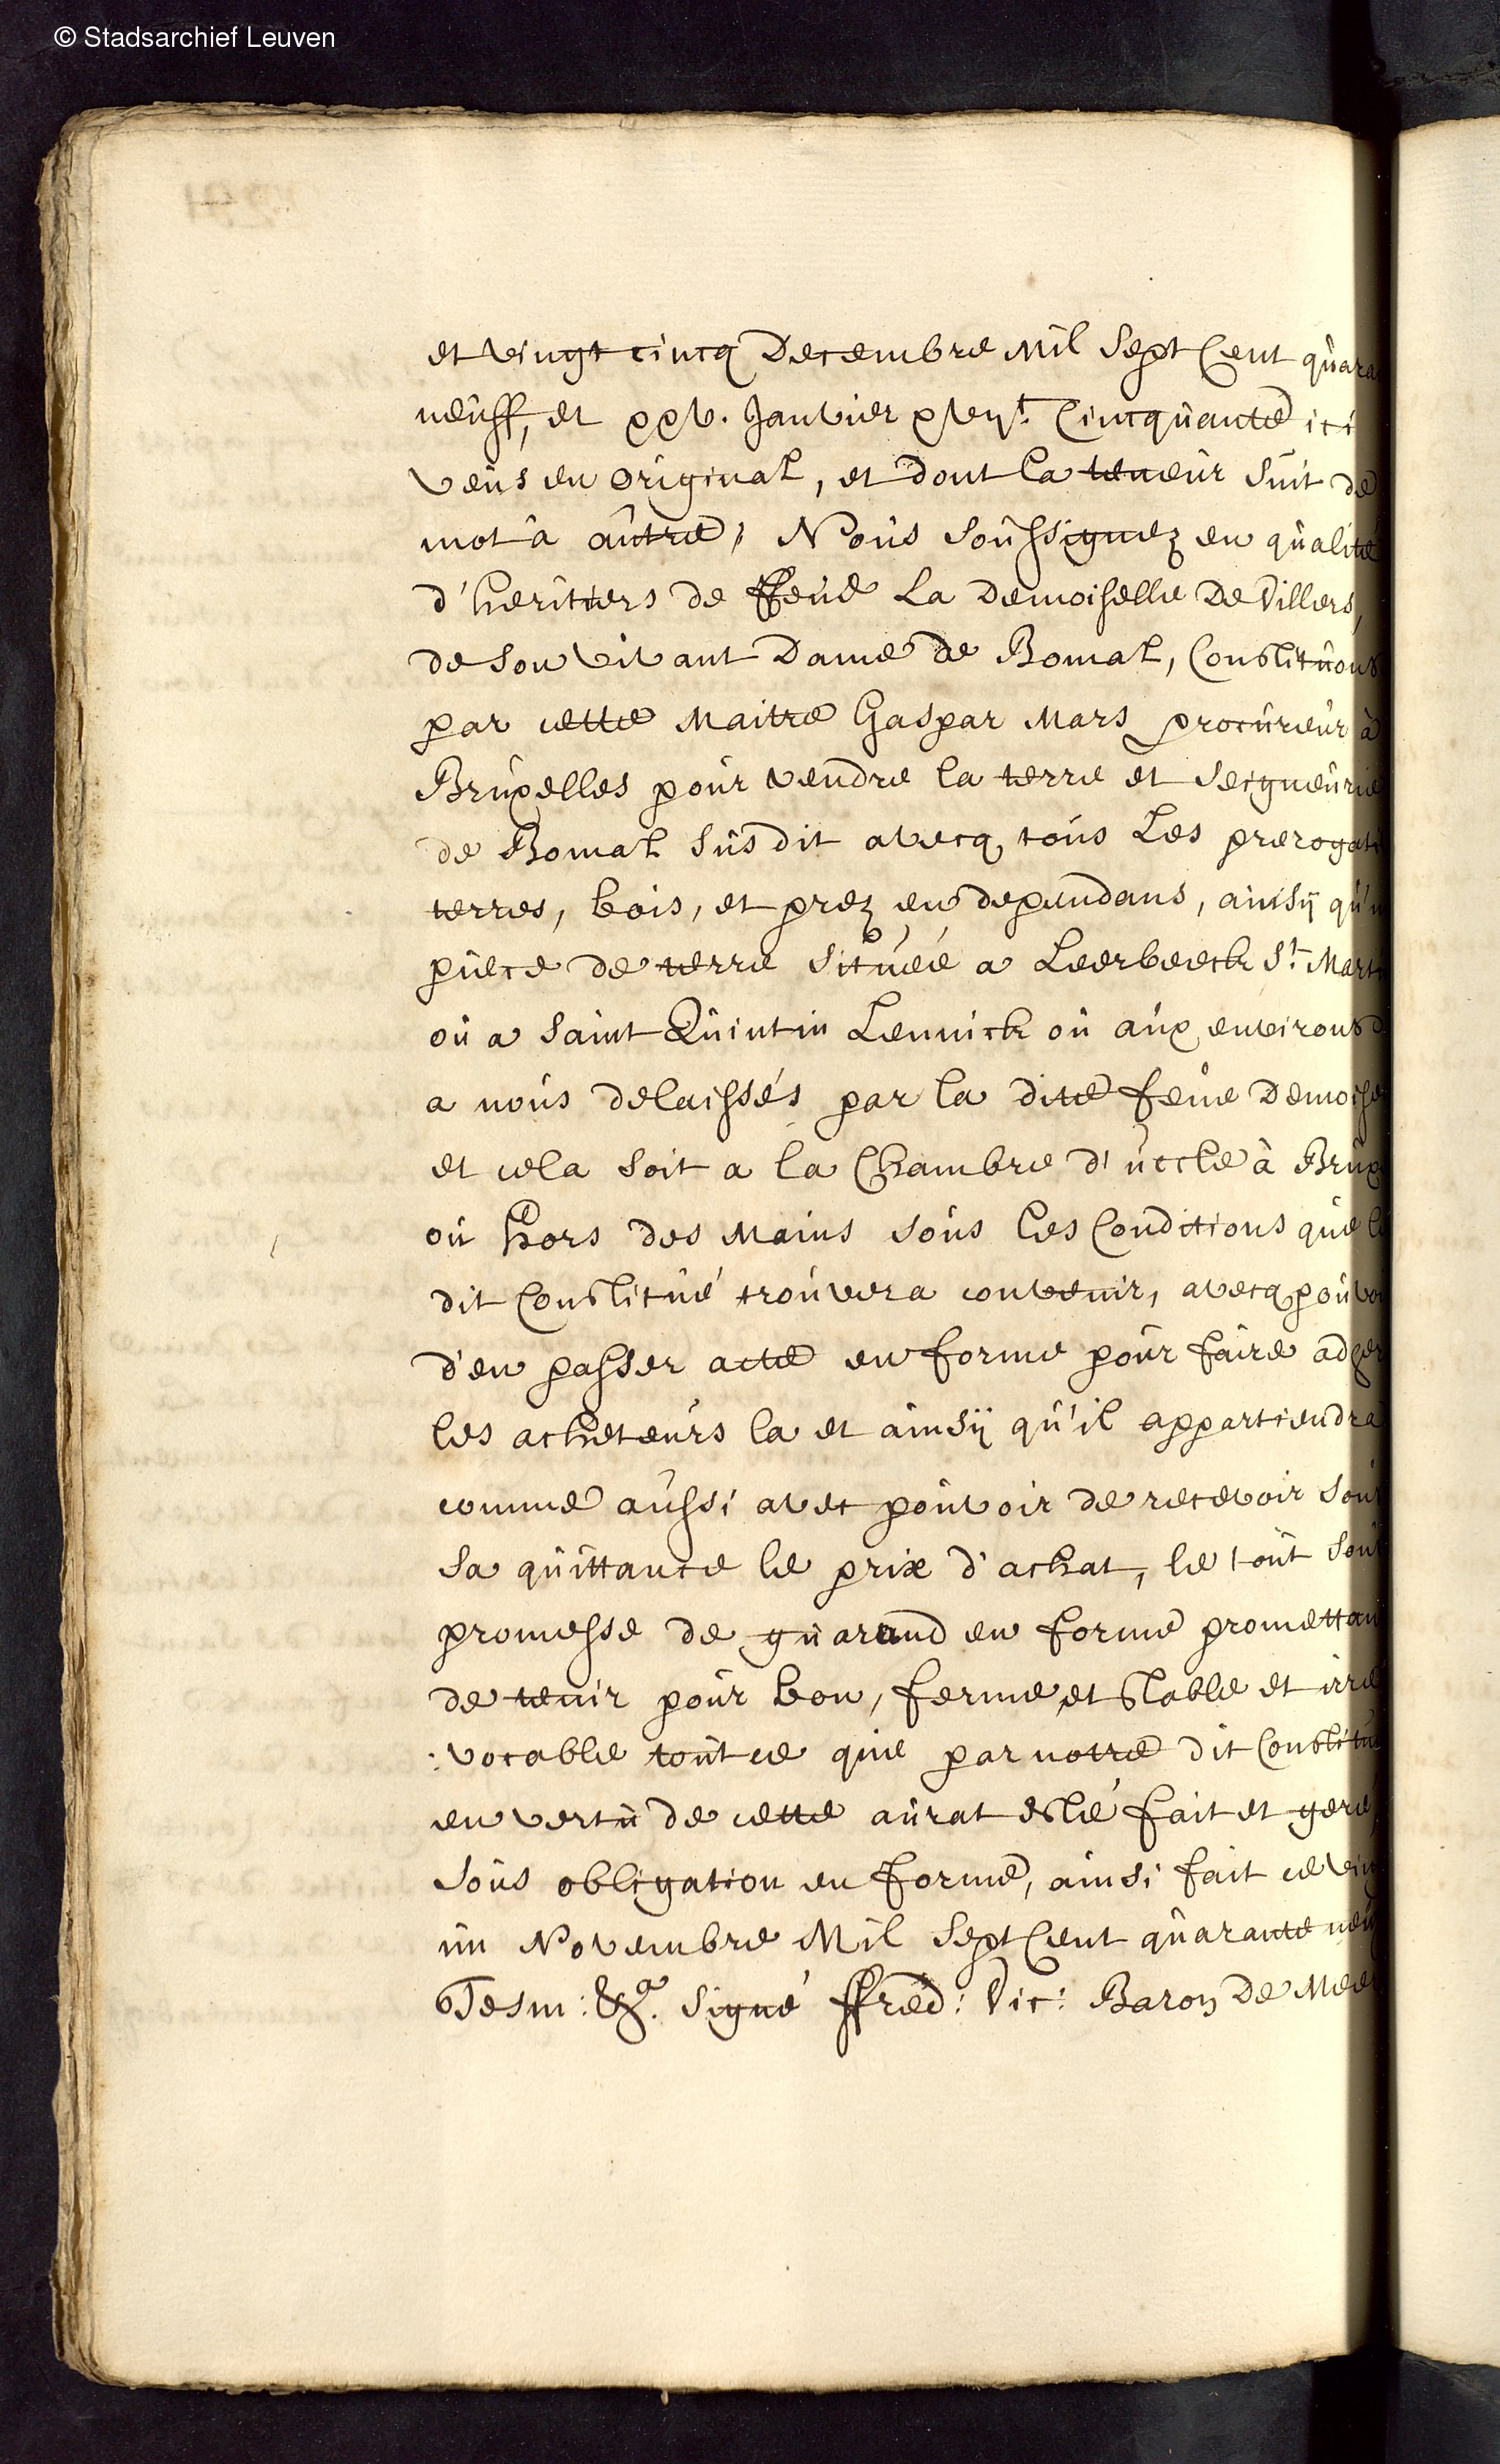 © Stadsarchief Leuven
et vingt cincq Decembre Mil Sept Cent quara
neuff, et xxv. Janvier xvijc. Cincquante ici
veus en original, et dont la teneur suit de
mot a autre, Nous soussignez en qualité
d'heritiers de ffeue La Demoiselle De Villers,
de son vivant Dame de Bomal, Constituons
par cette Maitre Gaspar Mars procureur à
Bruxelles pour vendre la terre et Seigneurie
de Bomal susdit avecq tous Les prerogati
terres, bois, et prez en dependans, ainsÿ qu'u
piece de terre situéé a Leerbeeck St. Marti
ou a Saint Quintin Lennick ou aux environs d
a nous delaissés par la dite feue Demoise
et cela soit a la Chambre d'uccle à Brux
ou hors des Mains sous les Conditions que le
dit Constitué trouvera convenir, avecq pouvoi
d'en passer acte en forme pour faire adher
les acheteurs la et ainsÿ qu'il appartiendra
comme aussi avec pouvoir de recevoir sous
sa quittance le prix d'achat, le tout sous
promesse de guarand en forme promettan
de tenir pour bon, ferme et stable et irre
:vocable tout ce que par notre dit Constitué
en vertu de cette aurat esté fait et geré,
sous obligation en forme, ainsi fait ce ving
un Novembre Mil Sept Cent quarante neu
Tesm: &a. signé ffred: Vic: Baron De Meer